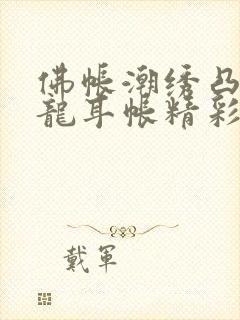 佛帐潮绣凸
龍耳帐精彩
戴軍